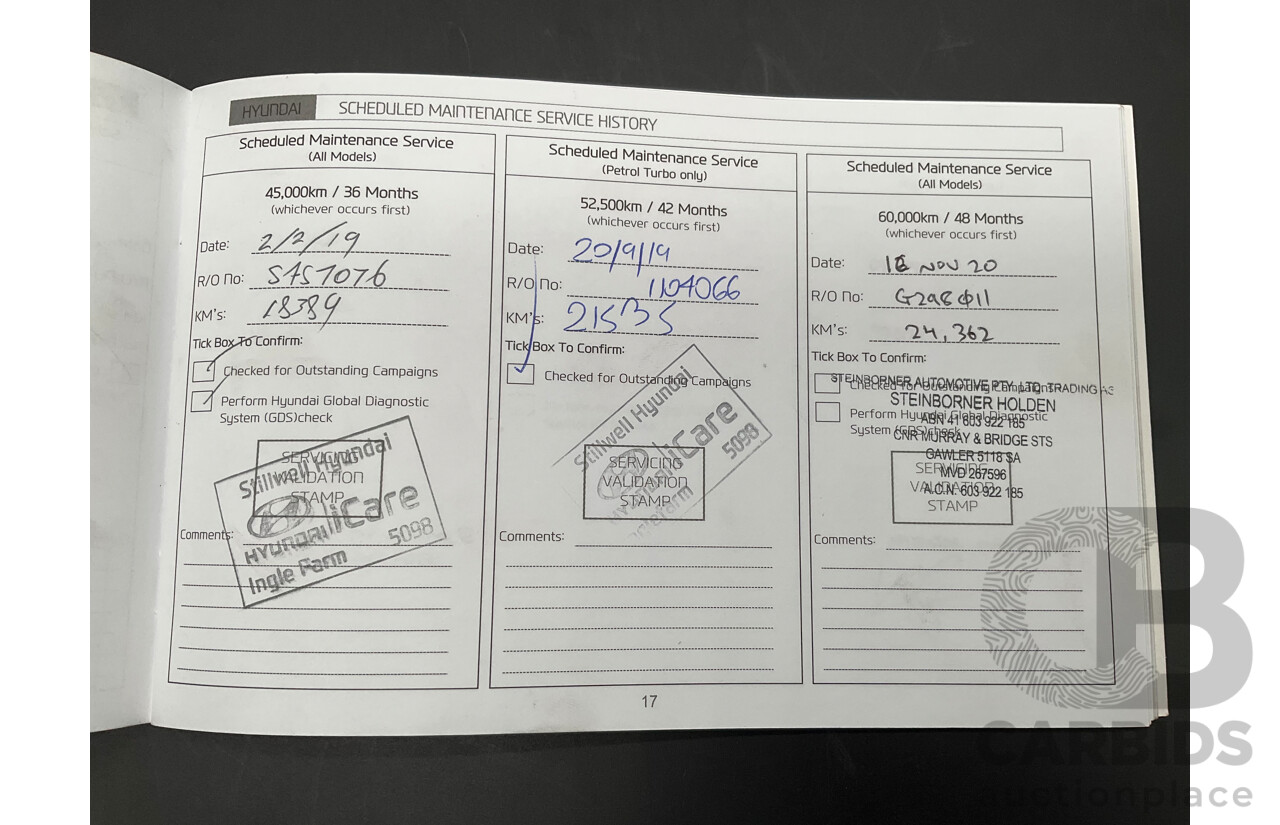 HYUNDAI SCHEDULED MAINTENANCE SERVICE HISTORY
Scheduled Maintenance Service
(All Models)
45,000km / 36 Months
(whichever occurs first)
Date: 2/2/19
R/O No:
KM's: 18389
Tick Box To Confirm:
Checked for Outstanding Campaigns
Perform Hyundai Global Diagnostic
System (GDS)check
SERVICING
VALIDATION
STAMP
Stillwell Hyundai
HYUNDAI iCare
Ingle Farm 5098
Comments:
Scheduled Maintenance Service
(Petrol Turbo only)
52,500km / 42 Months
(whichever occurs first)
Date: 20/9/19
R/O No: 1104066
KM's:
Tick Box To Confirm:
Checked for Outstanding Campaigns
Stillwell Hyundai
HYUNDAI iCare
Ingle Farm 5098
SERVICING
VALIDATION
STAMP
Comments:
Scheduled Maintenance Service
(All Models)
60,000km / 48 Months
(whichever occurs first)
Date: NOV 20
R/O No:
KM's: 24,362
Tick Box To Confirm:
Checked for Outstanding Campaigns
Perform Hyundai Global Diagnostic
System (GDS)check
STEINBORNER AUTOMOTIVE PTY. LTD. TRADING AS
STEINBORNER HOLDEN
ABN 41 603 922 185
CNR MURRAY & BRIDGE STS
GAWLER 5118 SA
MVD 267596
A.C.N. 603 922 185
SERVICING
VALIDATION
STAMP
Comments:
17
CB
CARBIDS
auctionplace